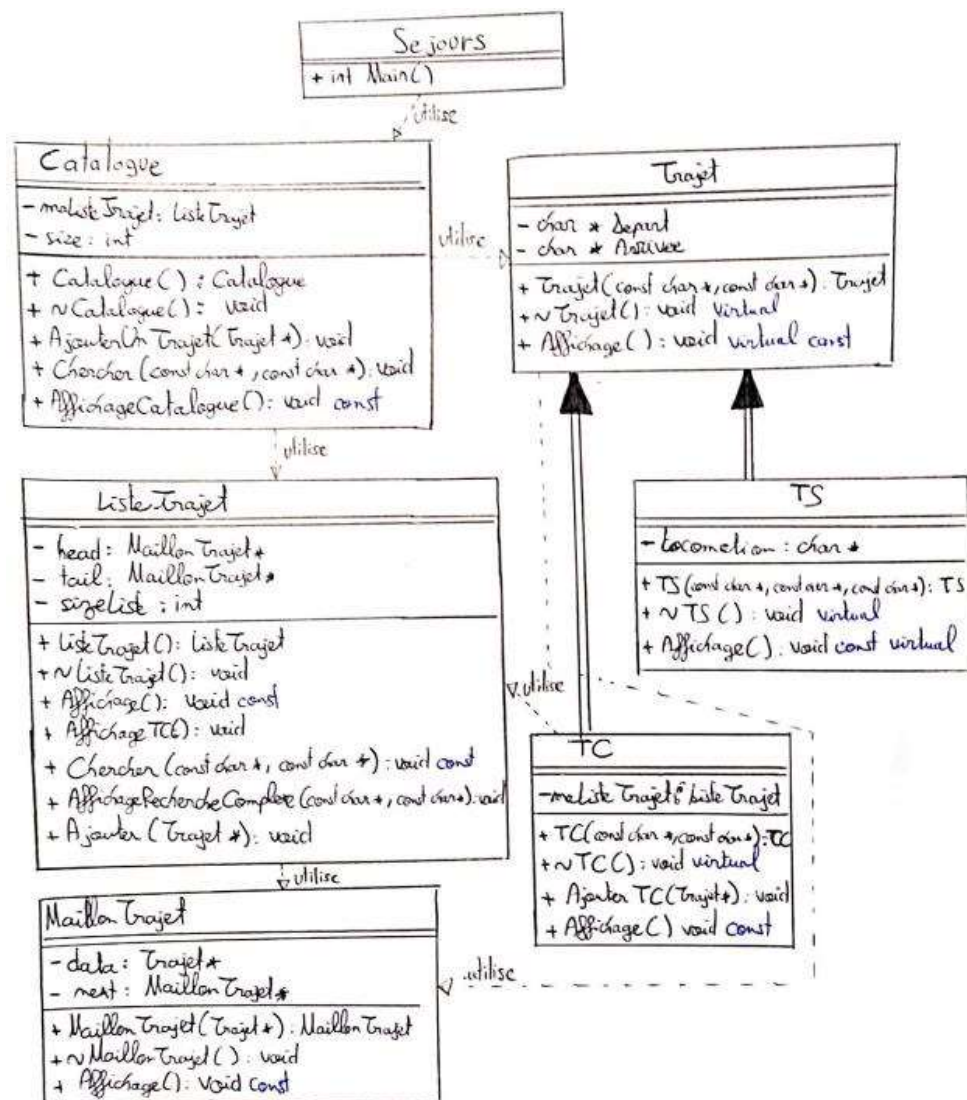 Sejours
+ int Main()
utilise
Catalogue
- maListeTrajet: ListeTrajet
- size: int
+ Catalogue() : Catalogue
+ ~Catalogue() : void
+ AjouterUnTrajet(Trajet *): void
+ Chercher (const char *, const char *): void
+ AffichageCatalogue(): void const
utilise
Trajet
- char * Depart
- char * Arrivee
+ Trajet(const char *, const char *): Trajet
+ ~Trajet(): void virtual
+ Affichage(): void virtual const
utilise
ListeTrajet
- head: MaillonTrajet*
- tail: MaillonTrajet*
- sizeList: int
+ ListeTrajet(): ListeTrajet
+ ~ListeTrajet(): void
+ Affichage(): void const
+ AffichageTC(): void
+ Chercher (const char *, const char *): void const
+ AffichageRechercheComplexe(const char *, const char*): void
+ Ajouter (Trajet *): void
TS
- Locomotion: char *
+ TS(const char *, const char *, const char *): TS
+ ~TS(): void virtual
+ Affichage(): void const virtual
utilise
TC
- maListeTrajet: ListeTrajet
+ TC(const char *, const char *): TC
+ ~TC(): void virtual
+ AjouterTC(Trajet*): void
+ Affichage() void const
utilise
MaillonTrajet
- data: Trajet*
- next: MaillonTrajet*
+ MaillonTrajet(Trajet *): MaillonTrajet
+ ~MaillonTrajet(): void
+ Affichage(): void const
utilise